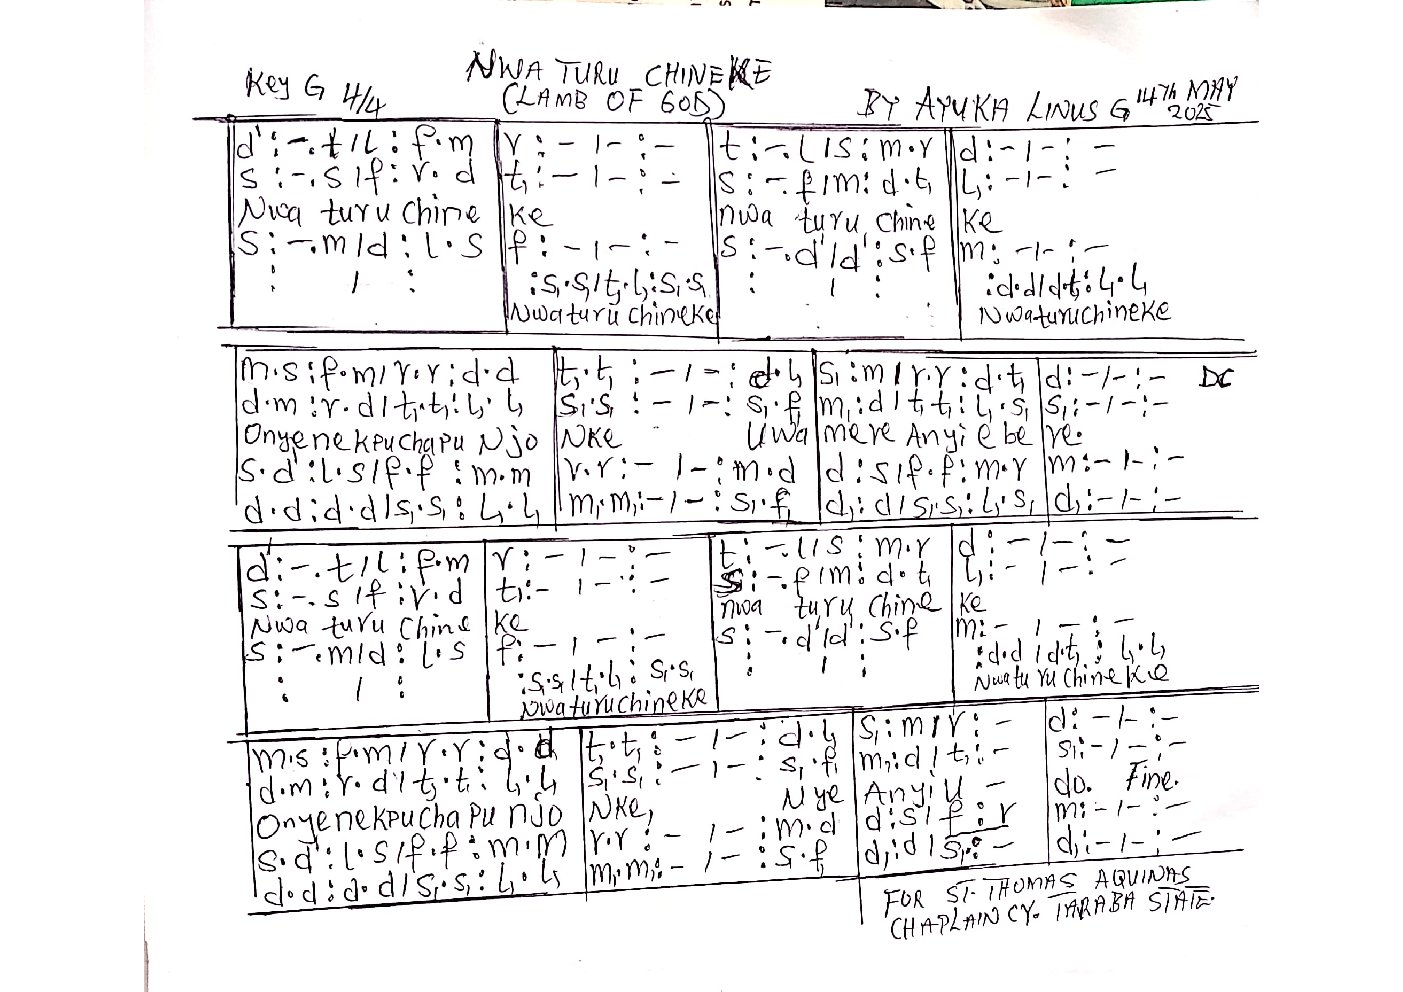 NWA TURU CHINEKE
Key G 4/4
(LAMB OF GOD)
BY AYUKA LINUS G 14th MAY 2025
d' : -. t / l : f . m | r : - / - : - | t : -. l / s : m . r | d : - / - : -
s : -. s / f : r . d | t, : - / - : - | s : -. f / m : d . t, | l, : - / - : -
Nwa turu Chine | ke | nwa turu Chine | ke
s : -. m / d : l . s | f : - / - : - | s : -. d' / d' : s . f | m : - / - : -
: / : | : s, . s, / t, . l, : s, . s, | : / : | : d . d / d . t, : l, . l,
Nwa turu chineke | Nwa turu Chineke
m . s : f . m / r . r : d . d | t, . t, : - / - : d . l, | s, : m / r . r : d . t, | d : - / - : - DC
d . m : r . d / t, . t, : l, . l, | s, . s, : - / - : s, . f, | m, : d / t, t, : l, . s, | s, : - / - : -
Onyenekpuchapu Njo | Nke Uwa | mere Anyi e be | re.
s . d' : l . s / f . f : m . m | r . r : - / - : m . d | d : s / f . f : m . r | m : - / - : -
d . d : d . d / s, . s, : l, . l, | m, . m, : - / - : s, . f, | d, : d / s, . s, : l, . s, | d, : - / - : -
d' : -. t / l : f . m | r : - / - : - | t : -. l / s : m . r | d : - / - : -
s : -. s / f : r . d | t, : - / - : - | s : -. f / m : d . t, | l, : - / - : -
Nwa turu Chine | ke | nwa turu Chine | ke
s : -. m / d : l . s | f : - / - : - | s : -. d' / d' : s . f | m : - / - : -
: / : | : s, . s, / t, . l, : s, . s, | : / : | : d . d / d . t, : l, . l,
Nwa turu chineke | Nwa tu ru Chine ke
m . s : f . m / r . r : d . d | t, . t, : - / - : d . l, | s, : m / r : - | d : - / - : -
d . m : r . d / t, . t, : l, . l, | s, . s, : - / - : s, . f, | m, : d / t, : - | s, : - / - : -
Onyenekpuchapu njo | Nke, Nye | Anyi U - | do. Fine.
s . d' : l . s / f . f : m . m | r . r : - / - : m . d | d : s / f : r | m : - / - : -
d . d : d . d / s, . s, : l, . l, | m, . m, : - / - : s, . f, | d, : d / s, : - | d, : - / - : -
FOR ST. THOMAS AQUINAS
CHAPLAINCY. TARABA STATE.